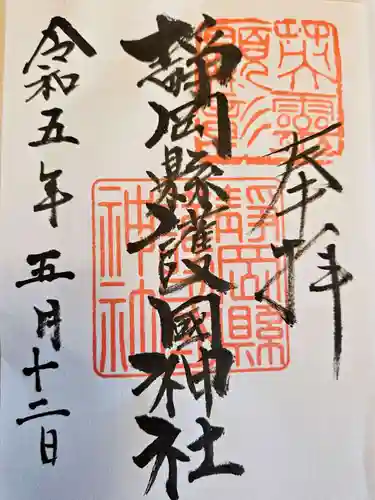 奉拝
英霊顕彰
靜岡縣護國神社
靜岡縣護國神社
令和五年五月十二日